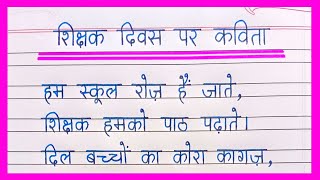 शिक्षक दिवस पर कविता
हम स्कूल रोज़ हैं जाते,
शिक्षक हमको पाठ पढ़ाते।
दिल बच्चों का कोरा कागज़,